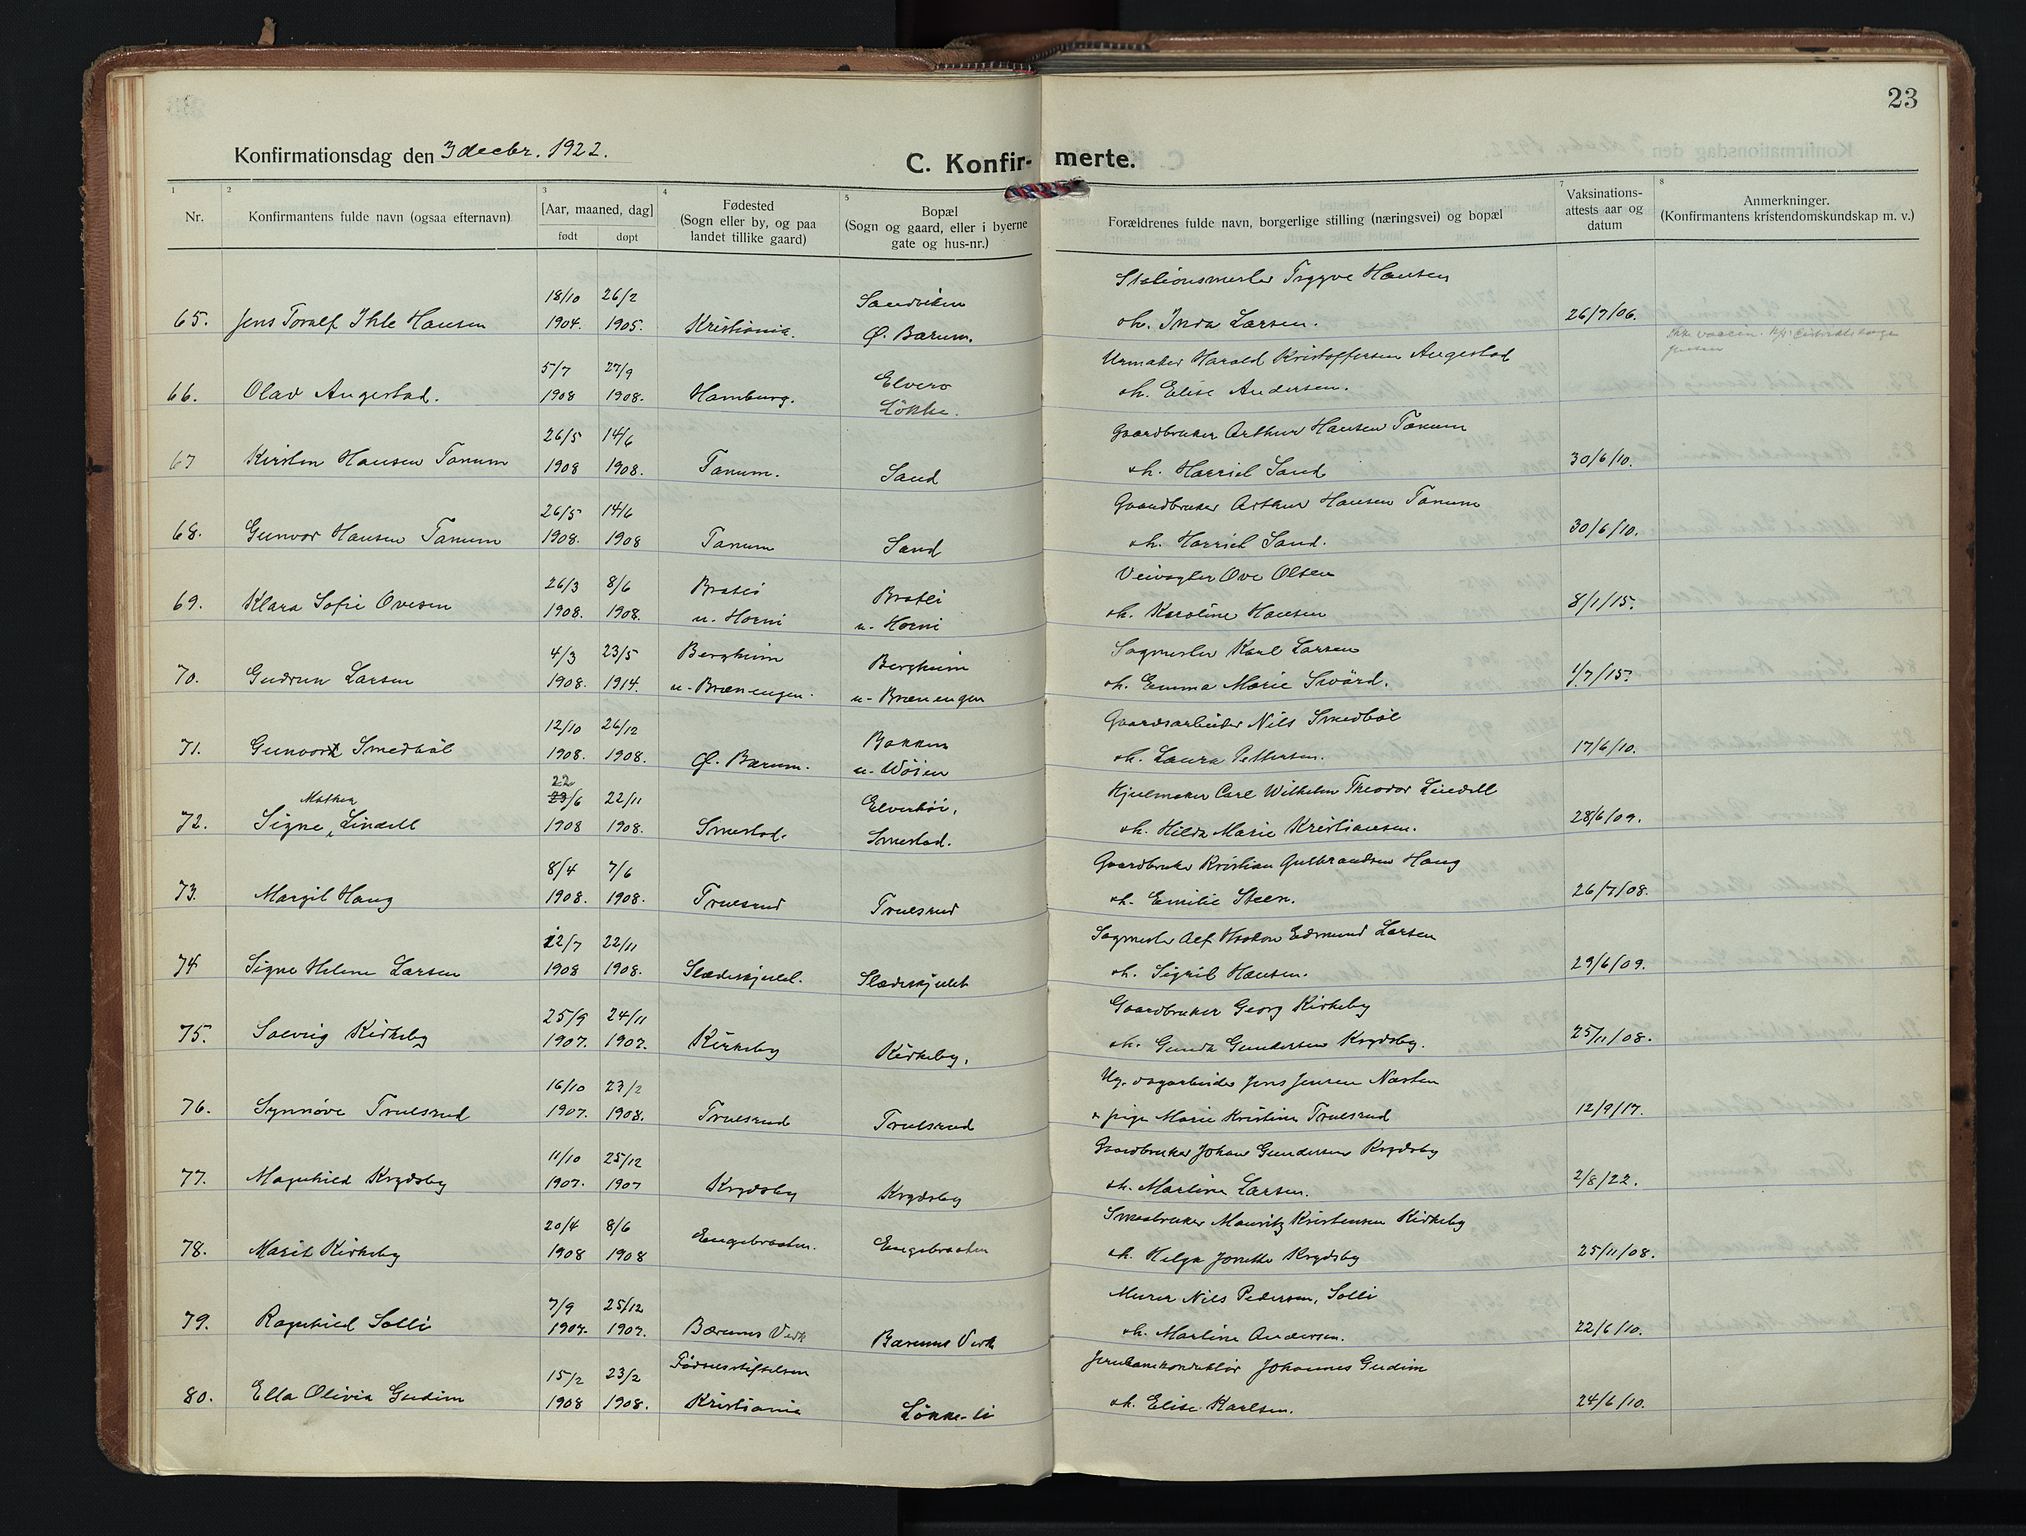 23
Konfirmationsdag den 3 decbr. 1922.
C. Konfir- merte.
1 2 3 4 5 7 8
Nr.
Konfirmantens fulde navn (ogsaa efternavn)
[Aar, maaned, dag]
født døpt
Fødested
(Sogn eller by, og paa
landet tillike gaard)
Bopæl
(Sogn og gaard, eller i byerne
gate og hus-nr.)
Forældrenes fulde navn, borgerlige stilling (næringsvei) og bopæl
Vaksinations-
attests aar og
datum
Anmerkninger.
(Konfirmantens kristendomskundskap m. v.)
18/10 26/2 Sandviken Stationsmester Trygve Hansen
65. Jens Toralf Ihle Hansen 1904. 1905. Kristiania. Ø. Bærum. oh. Inda Larsen. 26/7/06.
5/7 27/9 Elvero Urmaker Harald Kristoffersen Angestad
66. Olav Angestad. 1908 1908. Hamburg. Løkke. oh. Elise Andersen.
26/5 14/6 Gaardbruker Arthur Hansen Tanum
67 Kirsten Hansen Tanum 1908 1908. Tanum. Sand oh. Harriet Sand 30/6/10.
26/5 14/6 Gaardbruker Arthur Hansen Tanum
68. Gunvor Hansen Tanum 1908. 1908 Tanum Sand oh. Harriet Sand. 30/6/10.
26/3 8/6 Bratli Bratli Veivogter Ove Olsen
69. Klara Sofie Ovesen 1908. 1908. u. Horni u. Horni oh. Karoline Hansen 8/1/15.
4/3 23/5 Bergheim Bergheim Sagmester Karl Larsen
70. Gudrun Larsen 1908. 1914. u. Brænengen. u. Brænengen oh. Emma Marie Swärd. 1/7/15.
12/10 26/12 Bakken Gaardsarbeider Nils Smedbøl
71. Gunvor Smedbøl 1908. 1908. Ø. Bærum. u. Wøien oh. Laura Pettersen. 17/6/10.
22
Mathea 23/6 22/11 Elverhøi, Hjulmaker Carl Wilhelm Theodor Lindell
72. Signe, Lindell 1908 1908. Smestad. Smestad. oh. Hilda Marie Kristiansen. 28/6/09.
8/4 7/6 Gaardbruker Kristian Gulbrandsen Haug
73. Margit Haug 1908. 1908. Truesrud Truesrud oh. Emilie Steen. 26/7/08.
12/7 22/11 Sagmester Alf Haakon Edmund Larsen
74 Signe Helene Larsen 1908 1908. Slædeskjulet. Slædeskjulet oh. Sigrid Hansen. 29/6/09.
25/9 24/11 Gaardbruker Georg Kirkeby
75. Solveig Kirkeby 1907. 1907. Kirkeby Kirkeby. oh. Gunda Gundersen Krydsby. 25/11/08.
16/10 23/2 Ug. dagarbeider Jens Jensen Næsten
76. Synnøve Truesrud 1907. 1908. Truesrud Truesrud & pige Marie Kristine Truesrud 12/9/17.
11/10 25/12 Gaardbruker Johan Gundersen Krydsby
77. Magnhild Krydsby 1907. 1907 Krydsby Krydsby oh. Martine Larsen. 2/8/22.
20/4 8/6 Smaabruker Mauritz Kristensen Kirkeby
78. Marit Kirkeby 1908 1908 Engebraaten. Engebraaten oh. Helga Jonette Krydsby 25/11/08.
7/9 25/12 Murer Nils Pedersen, Solli
79. Ragnhild Solli 1907. 1907. Bærums Verk Bærums Verk oh. Martine Andersen. 22/6/10.
15/2 23/2 Fødselsstiftelsen Jernbanekonduktør Johannes Gudim
80. Ella Olivia Gudim 1908 1908. Kristiania Løkke-li oh. Elise Karlsen. 24/6/10.